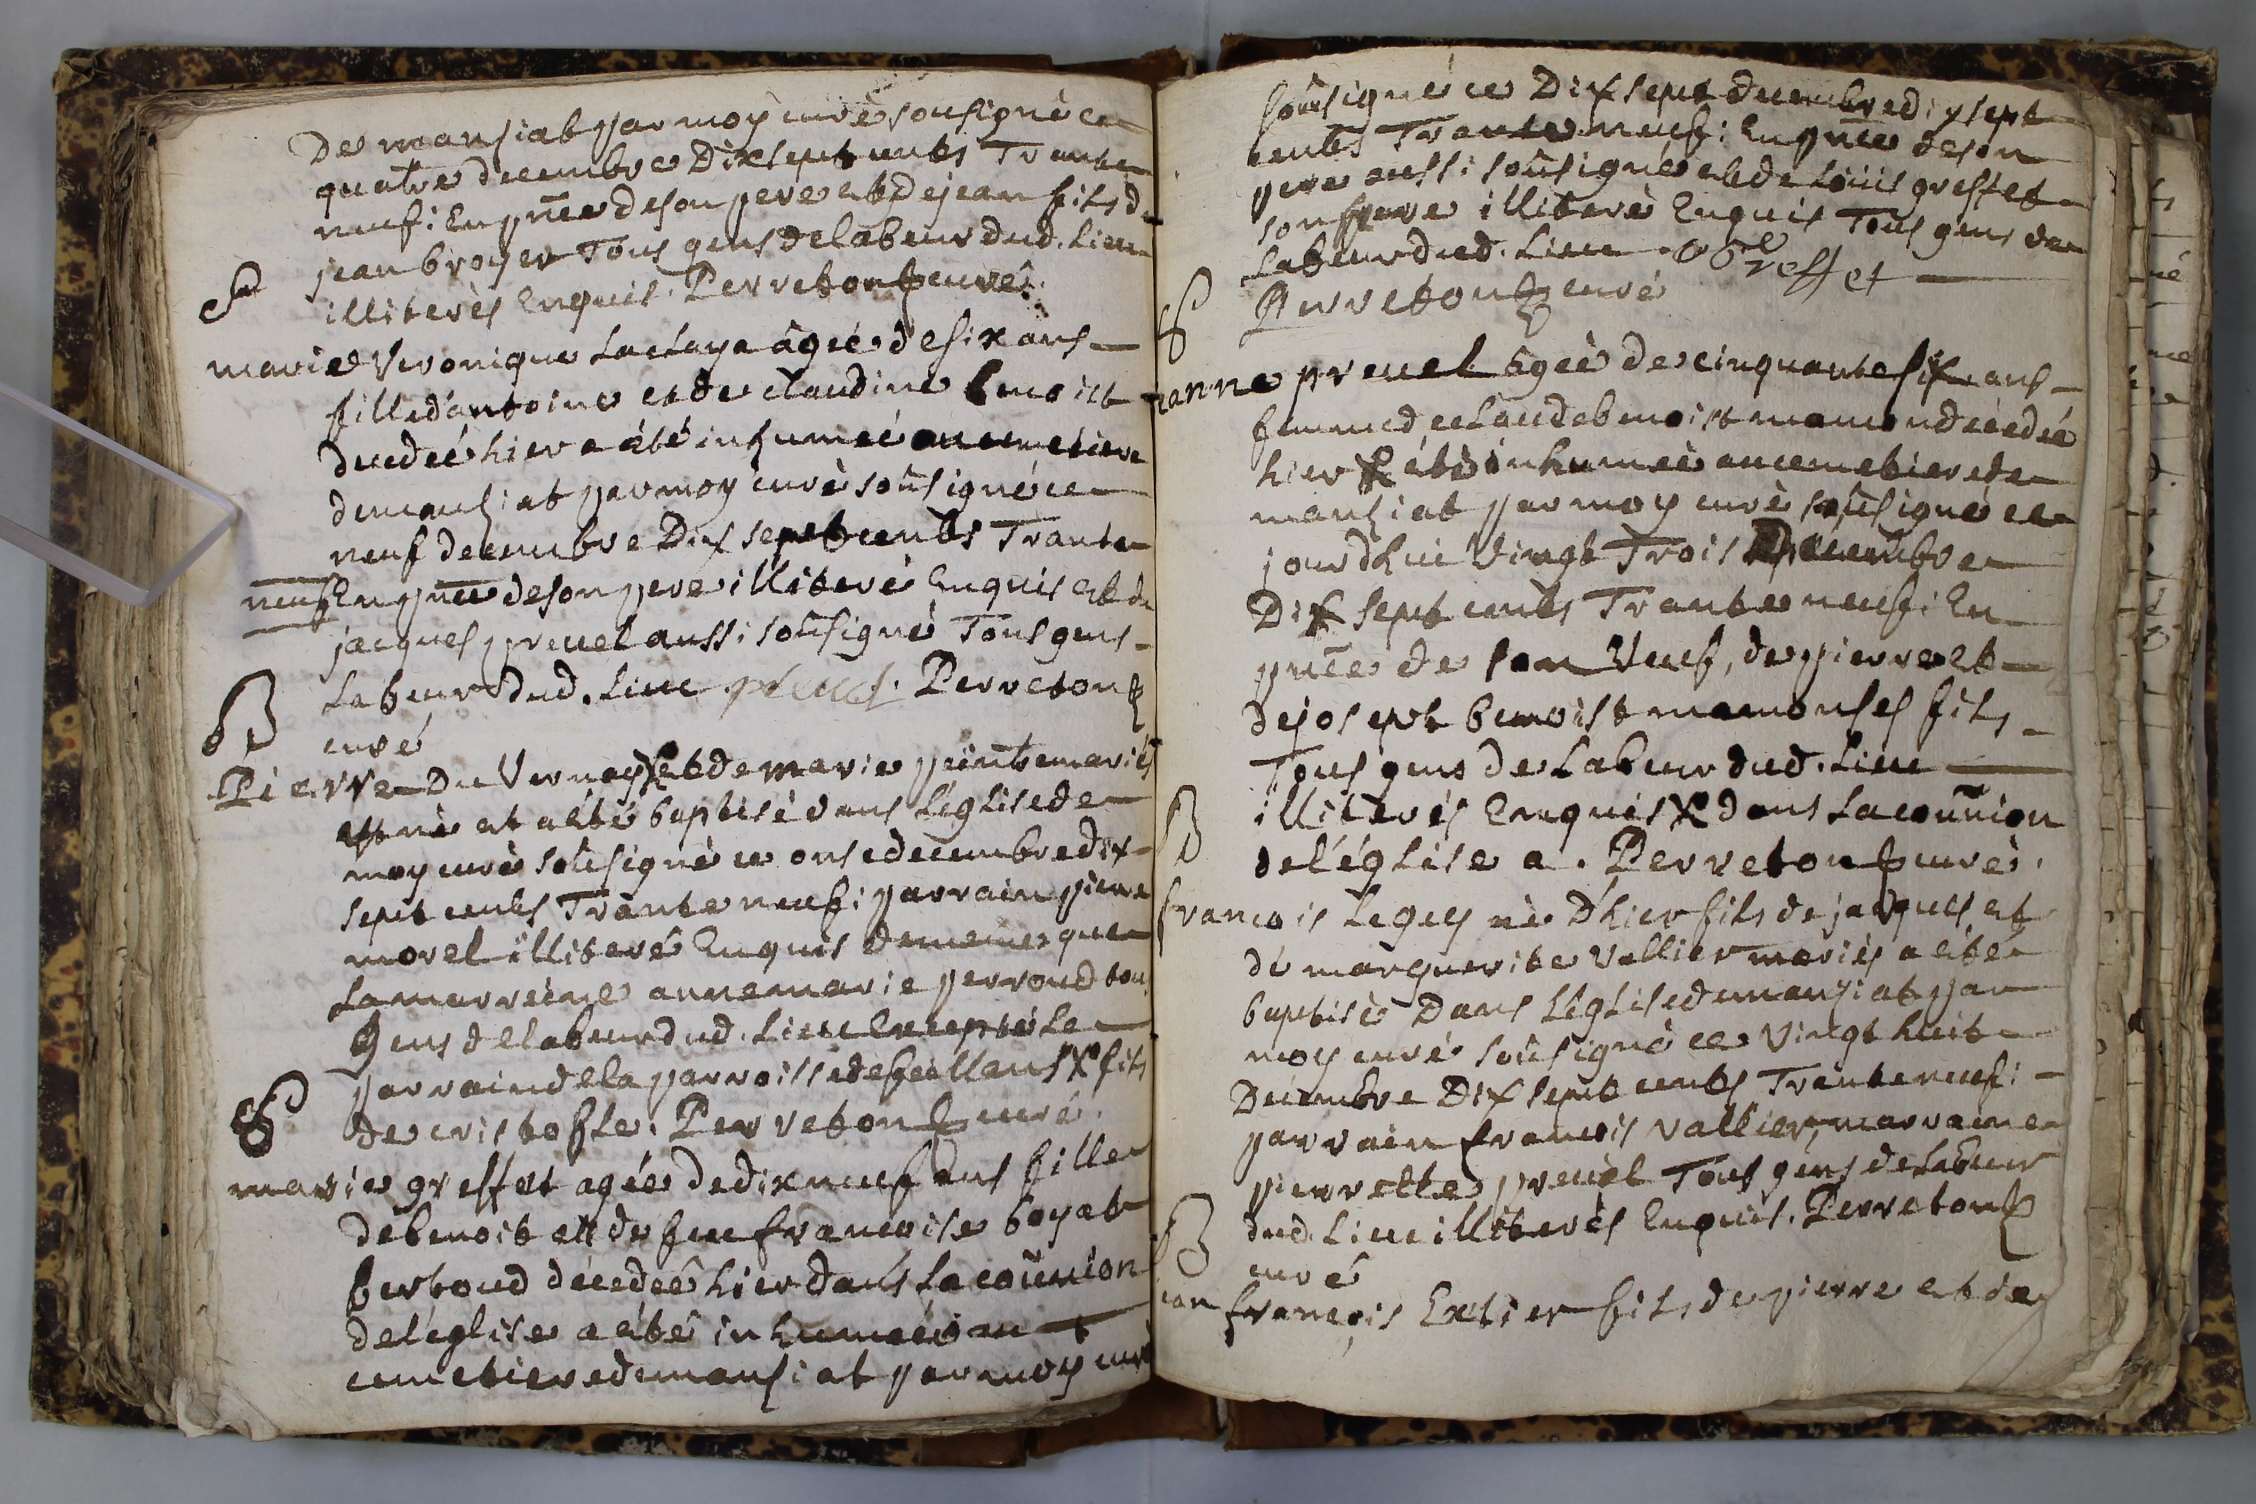 De manziat par moy curé sousigné ce
quatre decembre Dix sept cents Trante
neuf: En pñce de son pere et de jean fils de
jean broyer Tous gens de labeur dud. Lieu
illiterés Enquis. Perretonz curé.
S
marie Veronique Laclaya âgée de six ans
fille d'antoine et de claudine benoist
decedée hier a été inhumée au cemetiere
de manziat par moy curé sousigné ce
neuf decembre Dix sept cents Trante
neuf En pñce de son pere illiteré Enquis et de
jacques preuel aussi sousigné Tous gens
Labeur dud. Lieu preuel. Perretonz
curé
B
Pierre Du Vernay X et de marie peinte mariés
est né et a été baptisé dans L'église de
moy curé sousigné ce onse decembre dix
sept cents Trante neuf: parrain pierre
morel illiteré Enquis de meme que
La marreine anne marie perroud tous
Gens de labeur dud. Lieu Excepté Le
parrain de la parroisse de feillans X fils
de cristofle. Perretonz curé.
S
marie greffet agée de dix neuf ans fille
de benoit et de feu francoise boyat
berthoud décedée hier dans La com̃union
de l'église a été inhumée au
cemetiere de manziat par moy curé
sousigné ce Dix sept decembre dix sept
cents Trante neuf: En pñce de son
pere aussi sousigné et de Loüis greffet
son frere illiteré Enquis Tous gens de
Labeur dud. Lieu. greffet
Perretonz curé
S
janne preuel âgée de cinquante six ans
femme de claude benoist mamon décedée
hier X été inhumée au cemetiere de
manziat par moy curé sousigné ce
jourdhui Vingt Trois Decembre
Dix sept cents Trante neuf: En
pñce de son Veuf, de pierre et
de josept benoist mamon ses fils
Tous gens de Labeur dud. Lieu
illiterés Enquis X dans La com̃union
de l'église a. Perretonz curé.
B
francois Leguy né D'hier fils de jacques et
de marguerite Vallier mariés a été
baptisé Dans L'église de manziat par
moy curé sousigné ce Vingt huit
Decembre Dix sept cents Trante neuf:
parrain francois vallier, marraine
pierrette preuel Tous gens de Labeur
dud. Lieu illiterés Enquis. Perretonz
curé
B
jean françois Extier fils de pierre et de